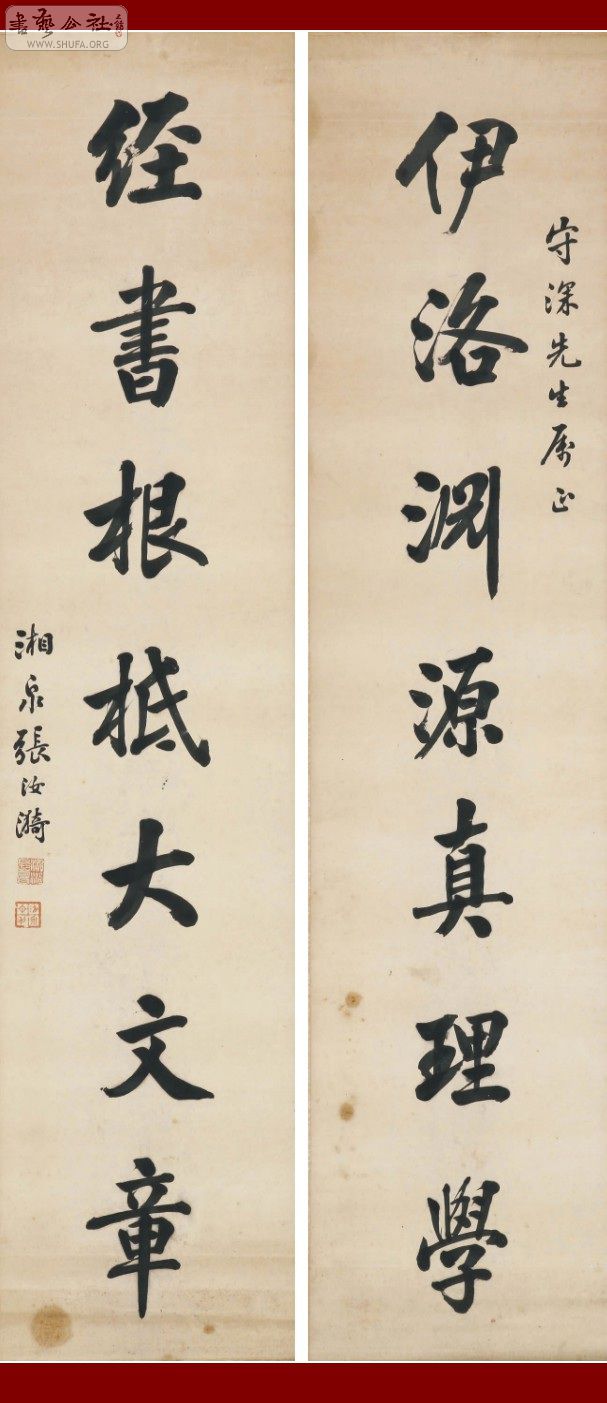 書藝公社
WWW.SHUFA.ORG
守深先生属正
伊洛渊源真理學
经書根柢大文章
湘泉張汝漪